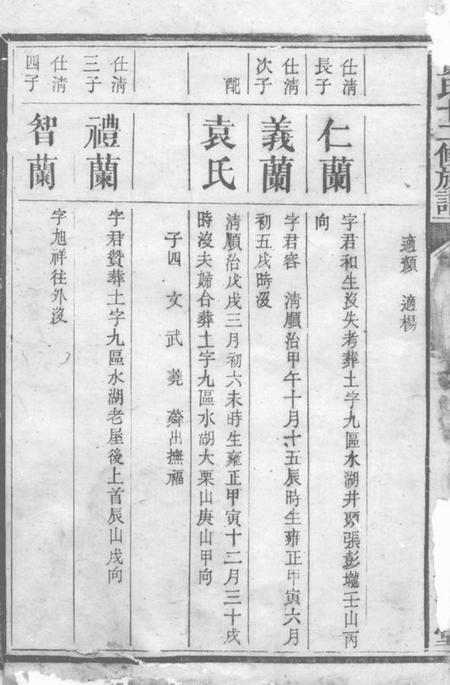 適顏　適楊
仕清長子
仁蘭
字君和生沒失考葬土字九區水湖井頭張彭壠壬山丙向
仕清次子
義蘭
字君容　清順治甲午十月十五辰時生雍正甲寅六月初五戌時沒
配
袁氏
清順治戊戌三月初六未時生雍正甲寅十二月三十戌時沒夫婦合葬土字九區水湖大栗山庚山甲向
子四　文　武　堯　出撫福
仕清三子
禮蘭
字君贊葬土字九區水湖老屋後上首辰山戌向
仕清四子
智蘭
字旭祥往外沒